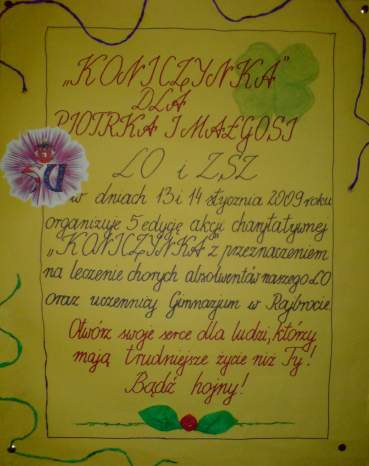 „KONICZYNKA"
DLA
PIOTRKA I MAŁGOSI
LO i ZSZ
w dniach 13 i 14 stycznia 2009 roku
organizuje 5 edycję akcji charytatywnej
„KONICZYNKA" z przeznaczeniem
na leczenie chorych absolwentów naszego LO
oraz uczennicy Gimnazjum w Rajbrocie.
Otwórz swoje serce dla ludzi, którzy
mają trudniejsze życie niż Ty!
Bądź hojny!